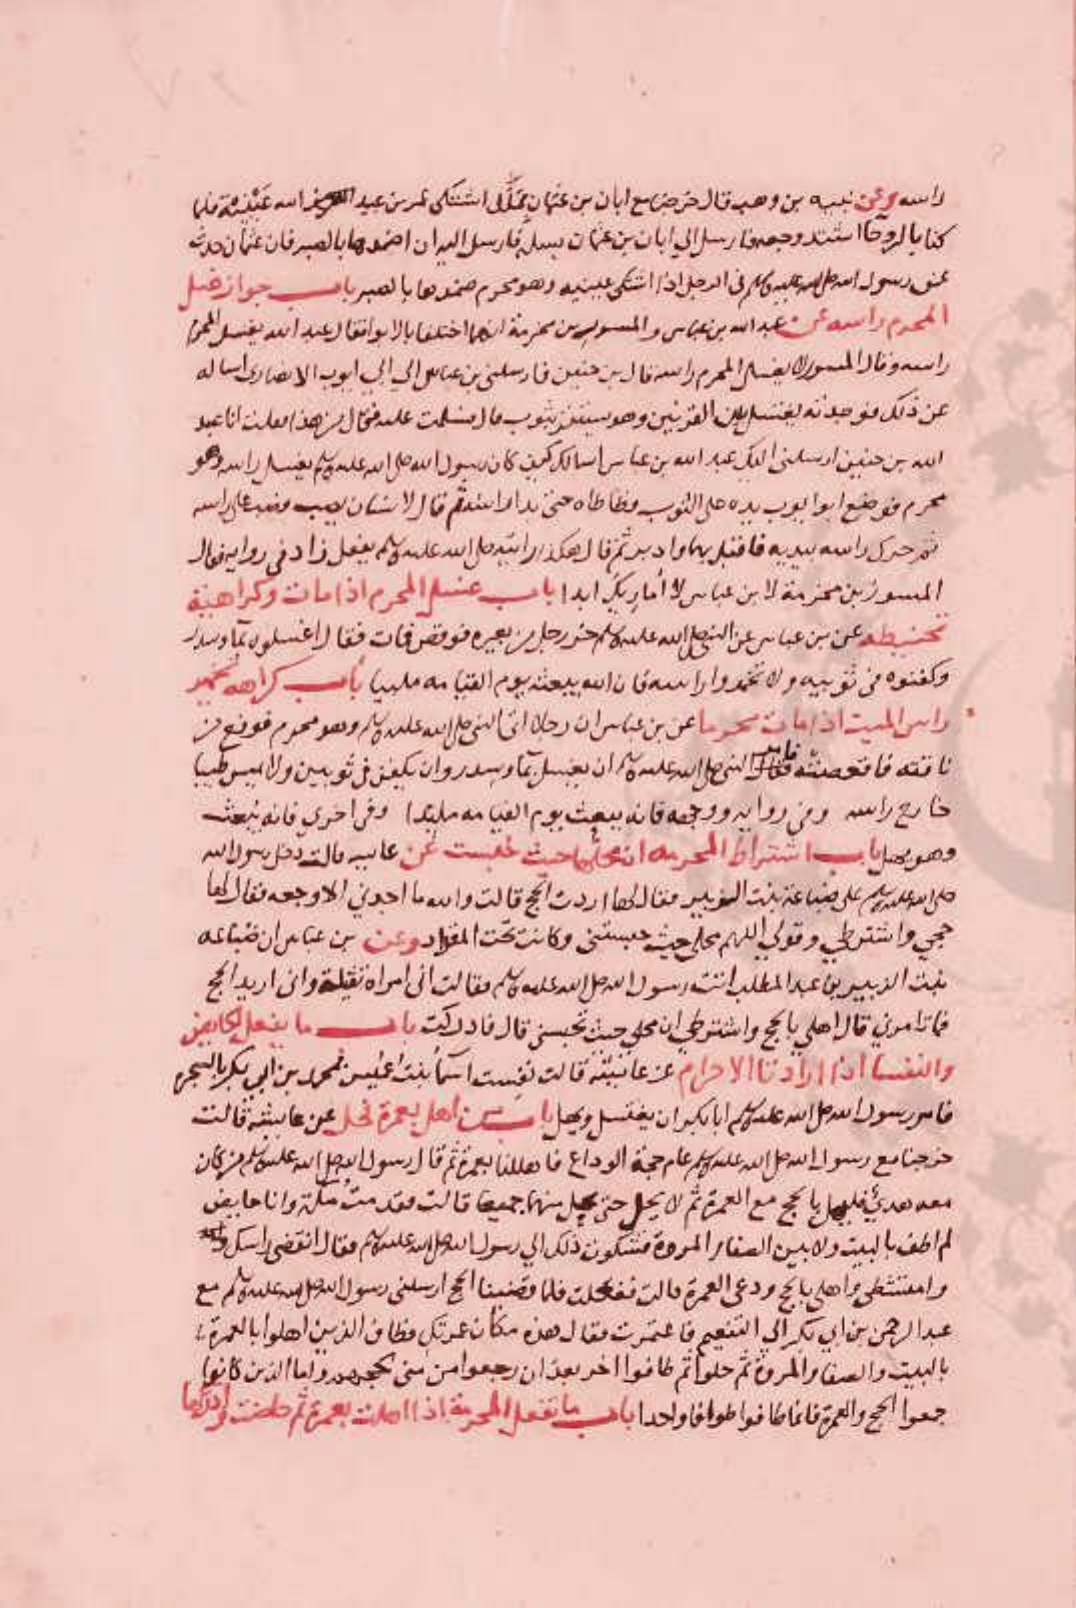 راسه وعن نبيه بن وهب قال خرجنا مع ابان بن عثمان بملل اشتكى عمر بن عبيد الله عينيه فلما
كنا بالروحا اشتد وجعه فارسل الي ابان بن عثمان يسله فارسل اليه ان اضمدها بالصبر فان عثمان حدث
عن رسول الله صلى الله عليه وسلم في الرجل اذا اشتكى عينيه وهو محرم ضمدها بالصبر باب جواز غسل
المحرم راسه عن عبد الله بن عباس والمسور بن مخرمة انهما اختلفا بالابوا فقال عبد الله يغسل المحرم
راسه وقال المسور لا يغسل المحرم راسه قال بن حنين فارسلني بن عباس الي ابي ايوب الانصاري اساله
عن ذلك فوجدته يغتسل بين القرنين وهو يستتر بثوب قال فسلمت عليه فقال من هذا فقلت انا عبد
الله بن حنين ارسلني اليك عبد الله بن عباس اسالك كيف كان رسول الله صلى الله عليه وسلم يغسل راسه وهو
محرم فوضع ابو ايوب يده على الثوب فطاطاه حتى بدا راسه ثم قال لانسان يصب فصب على راسه
ثم حرك راسه بيديه فاقبل بهما وادبر ثم قال هكذا رايته صلى الله عليه وسلم يفعل زاد في رواية فقال
المسور بن مخرمة لابن عباس لا اماريك ابدا باب غسل المحرم اذا مات وكراهية
تحنيطه عن بن عباس عن النبي صلى الله عليه وسلم خر رجل من بعيره فوقص فمات فقال اغسلوه بما وسدر
وكفنوه في ثوبيه ولا تخمروا راسه فان الله يبعثه يوم القيامه ملبيا باب كراهه تخمير
راس الميت اذا مات محرما عن بن عباس ان رجلا اتى النبي صلى الله عليه وسلم وهو محرم فوقع من
ناقته فاقعصته فامر النبي صلى الله عليه وسلم ان يغسل بما وسدر وان يكفن في ثوبين ولا يمس طيبا
خارج راسه وفي رواية ووجهه فانه يبعث يوم القيامه ملبدا وفي اخرى فانه يبعث
وهو يهل باب اشتراط المحرمه ان محلها حيث حبست عن عايشه قالت دخل رسول الله
صلى الله عليه وسلم على ضباعة بنت الزبير فقال لها اردت الحج قالت والله ما اجدني الا وجعه فقال لها
حجي واشترطي وقولي اللهم محلي حيث حبستني وكانت تحت المقداد وعن بن عباس ان ضباعه
بنت الزبير بن عبد المطلب اتت رسول الله صلى الله عليه وسلم فقالت اني امراه ثقيلة واني اريد الحج
فما تامرني قال اهلي بالحج واشترطي ان محلي حيث تحبسني قال فادركت باب ما يفعل الحايض
والنفسا اذا ارادتا الاحرام عن عايشه قالت نفست اسما بنت عميس بمحمد بن ابي بكر بالشجرة
فامر رسول الله صلى الله عليه وسلم ابا بكر ان يغتسل ويهل باب من اهل بعمرة نحل عن عايشه قالت
خرجنا مع رسول الله صلى الله عليه وسلم عام حجة الوداع فاهللنا بعمرة ثم قال رسول الله صلى الله عليه وسلم من كان
معه هدي فليهل بالحج مع العمرة ثم لا يحل حتى يحل منهما جميعا قالت فقدمت مكة وانا حايض
لم اطف بالبيت ولا بين الصفا والمروة فشكوت ذلك الي رسول الله صلى الله عليه وسلم فقال انقضي راسك
وامتشطي واهلي بالحج ودعي العمرة قالت ففعلت فلما قضينا الحج ارسلني رسول الله صلى الله عليه وسلم مع
عبد الرحمن بن ابي بكر الي التنعيم فاعتمرت فقال هذه مكان عمرتك فطاف الذين اهلوا بالعمرة
بالبيت والصفا والمروة ثم حلوا ثم طافوا اخر بعد ان رجعوا من منى لحجهم واما الذين كانوا
جمعوا الحج والعمرة فانما طافوا طوافا واحدا باب ما تفعل المحرمة اذا اهلت بعمرة ثم حاضت وادركها